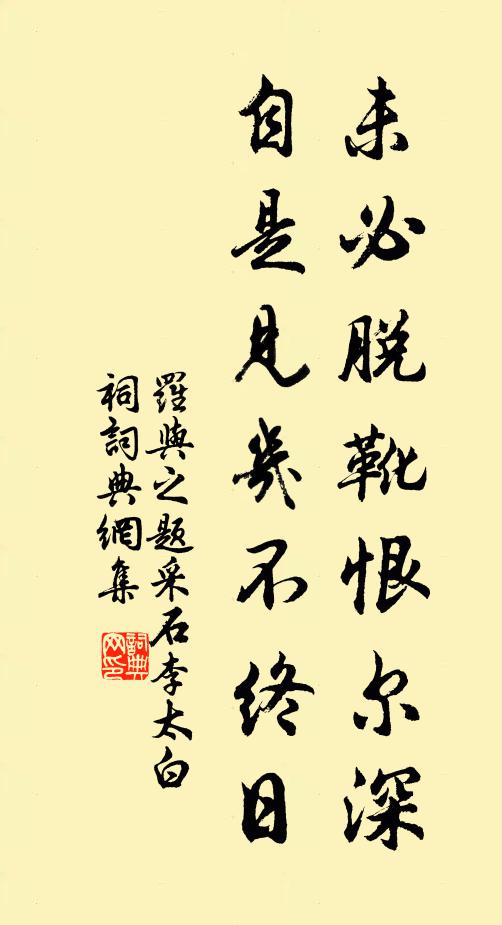 未必脱靴恨尔深
自是見幾不終日
羅與之題采石李太白
祠詞典網集
詞典网印